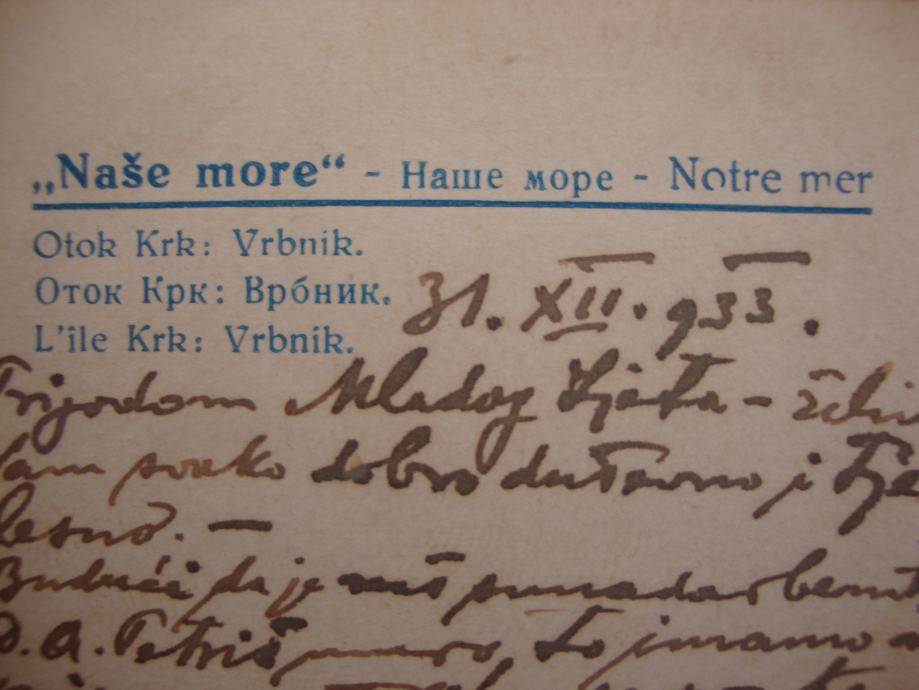 „Naše more“ - Наше море - Notre mer
Otok Krk: Vrbnik.
Оток Крк: Врбник.
L'île Krk: Vrbnik.
31. XII. 933.
Prigodom Mladog Ljeta - želim
Vam svako dobro duševno i tje
lesno. —
Budući da je naš
D. A. Petriš umro, to imamo